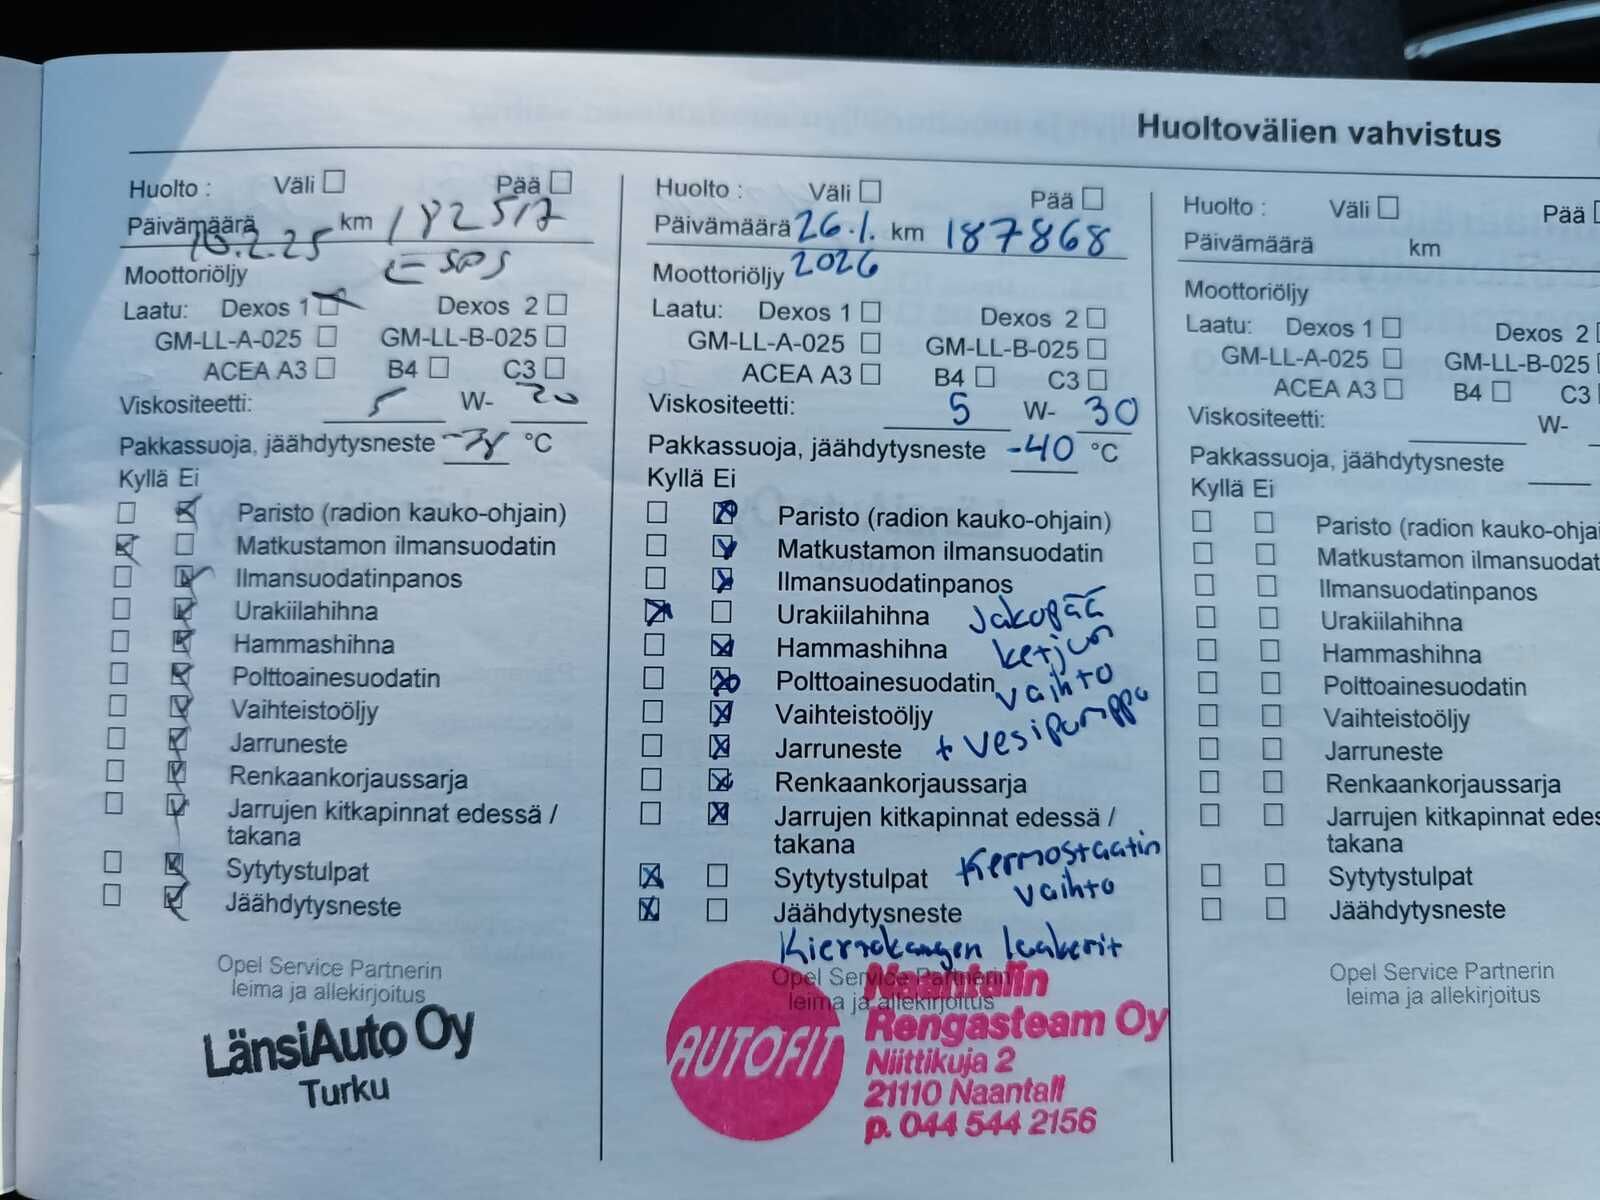 Huoltovälien vahvistus
Huolto : Väli Pää
Päivämäärä km 182517
10.2.25
Moottoriöljy
Laatu: Dexos 1 Dexos 2
GM-LL-A-025 GM-LL-B-025
ACEA A3 B4 C3
Viskositeetti: 5 W-
Pakkassuoja, jäähdytysneste °C
Kyllä Ei
Paristo (radion kauko-ohjain)
Matkustamon ilmansuodatin
Ilmansuodatinpanos
Urakiilahihna
Hammashihna
Polttoainesuodatin
Vaihteistoöljy
Jarruneste
Renkaankorjaussarja
Jarrujen kitkapinnat edessä /
takana
Sytytystulpat
Jäähdytysneste
Opel Service Partnerin
leima ja allekirjoitus
LänsiAuto Oy
Turku
Huolto : Väli Pää
Päivämäärä 26.1. km 187868
2026
Moottoriöljy
Laatu: Dexos 1 Dexos 2
GM-LL-A-025 GM-LL-B-025
ACEA A3 B4 C3
Viskositeetti: 5 W- 30
Pakkassuoja, jäähdytysneste -40 °C
Kyllä Ei
Paristo (radion kauko-ohjain)
Matkustamon ilmansuodatin
Ilmansuodatinpanos
Urakiilahihna Jakopää
Hammashihna ketjun
Polttoainesuodatin vaihto
Vaihteistoöljy
Jarruneste + vesipumppu
Renkaankorjaussarja
Jarrujen kitkapinnat edessä /
takana
Sytytystulpat Termostaatin
vaihto
Jäähdytysneste
Kierrokangen laakerit
Opel Service Partnerin
leima ja allekirjoitus
AUTOFIT
Naantalin
Rengasteam Oy
Niittikuja 2
21110 Naantali
p. 044 544 2156
Huolto : Väli Pää
Päivämäärä km
Moottoriöljy
Laatu: Dexos 1 Dexos 2
GM-LL-A-025 GM-LL-B-025
ACEA A3 B4 C3
Viskositeetti: W-
Pakkassuoja, jäähdytysneste
Kyllä Ei
Paristo (radion kauko-ohja
Matkustamon ilmansuodat
Ilmansuodatinpanos
Urakiilahihna
Hammashihna
Polttoainesuodatin
Vaihteistoöljy
Jarruneste
Renkaankorjaussarja
Jarrujen kitkapinnat edes
takana
Sytytystulpat
Jäähdytysneste
Opel Service Partnerin
leima ja allekirjoitus